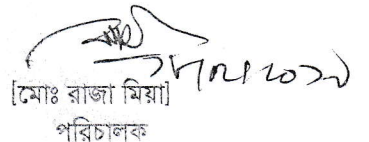 [মোঃ রাজা মিয়া]
পরিচালক